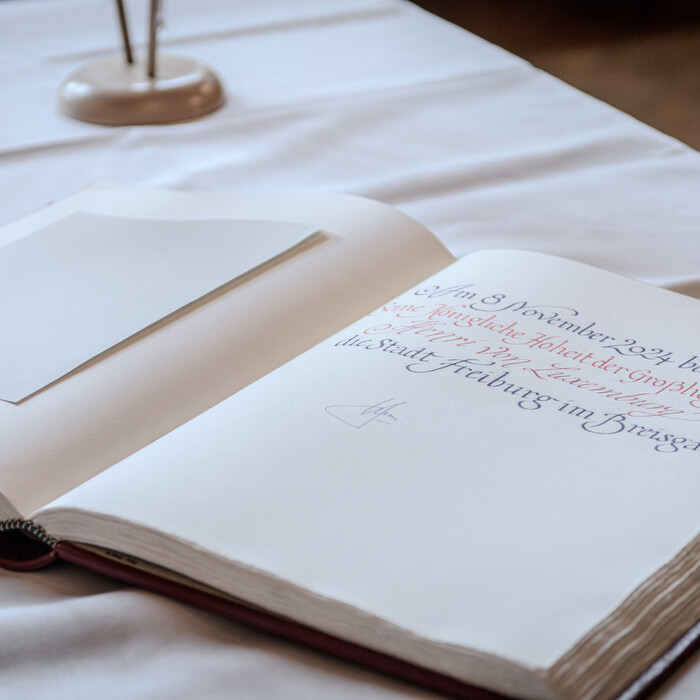 Am 8. November 2024 be
Seine Königliche Hoheit der Großhe
Henri von Luxemburg
die Stadt Freiburg im Breisga
Henri